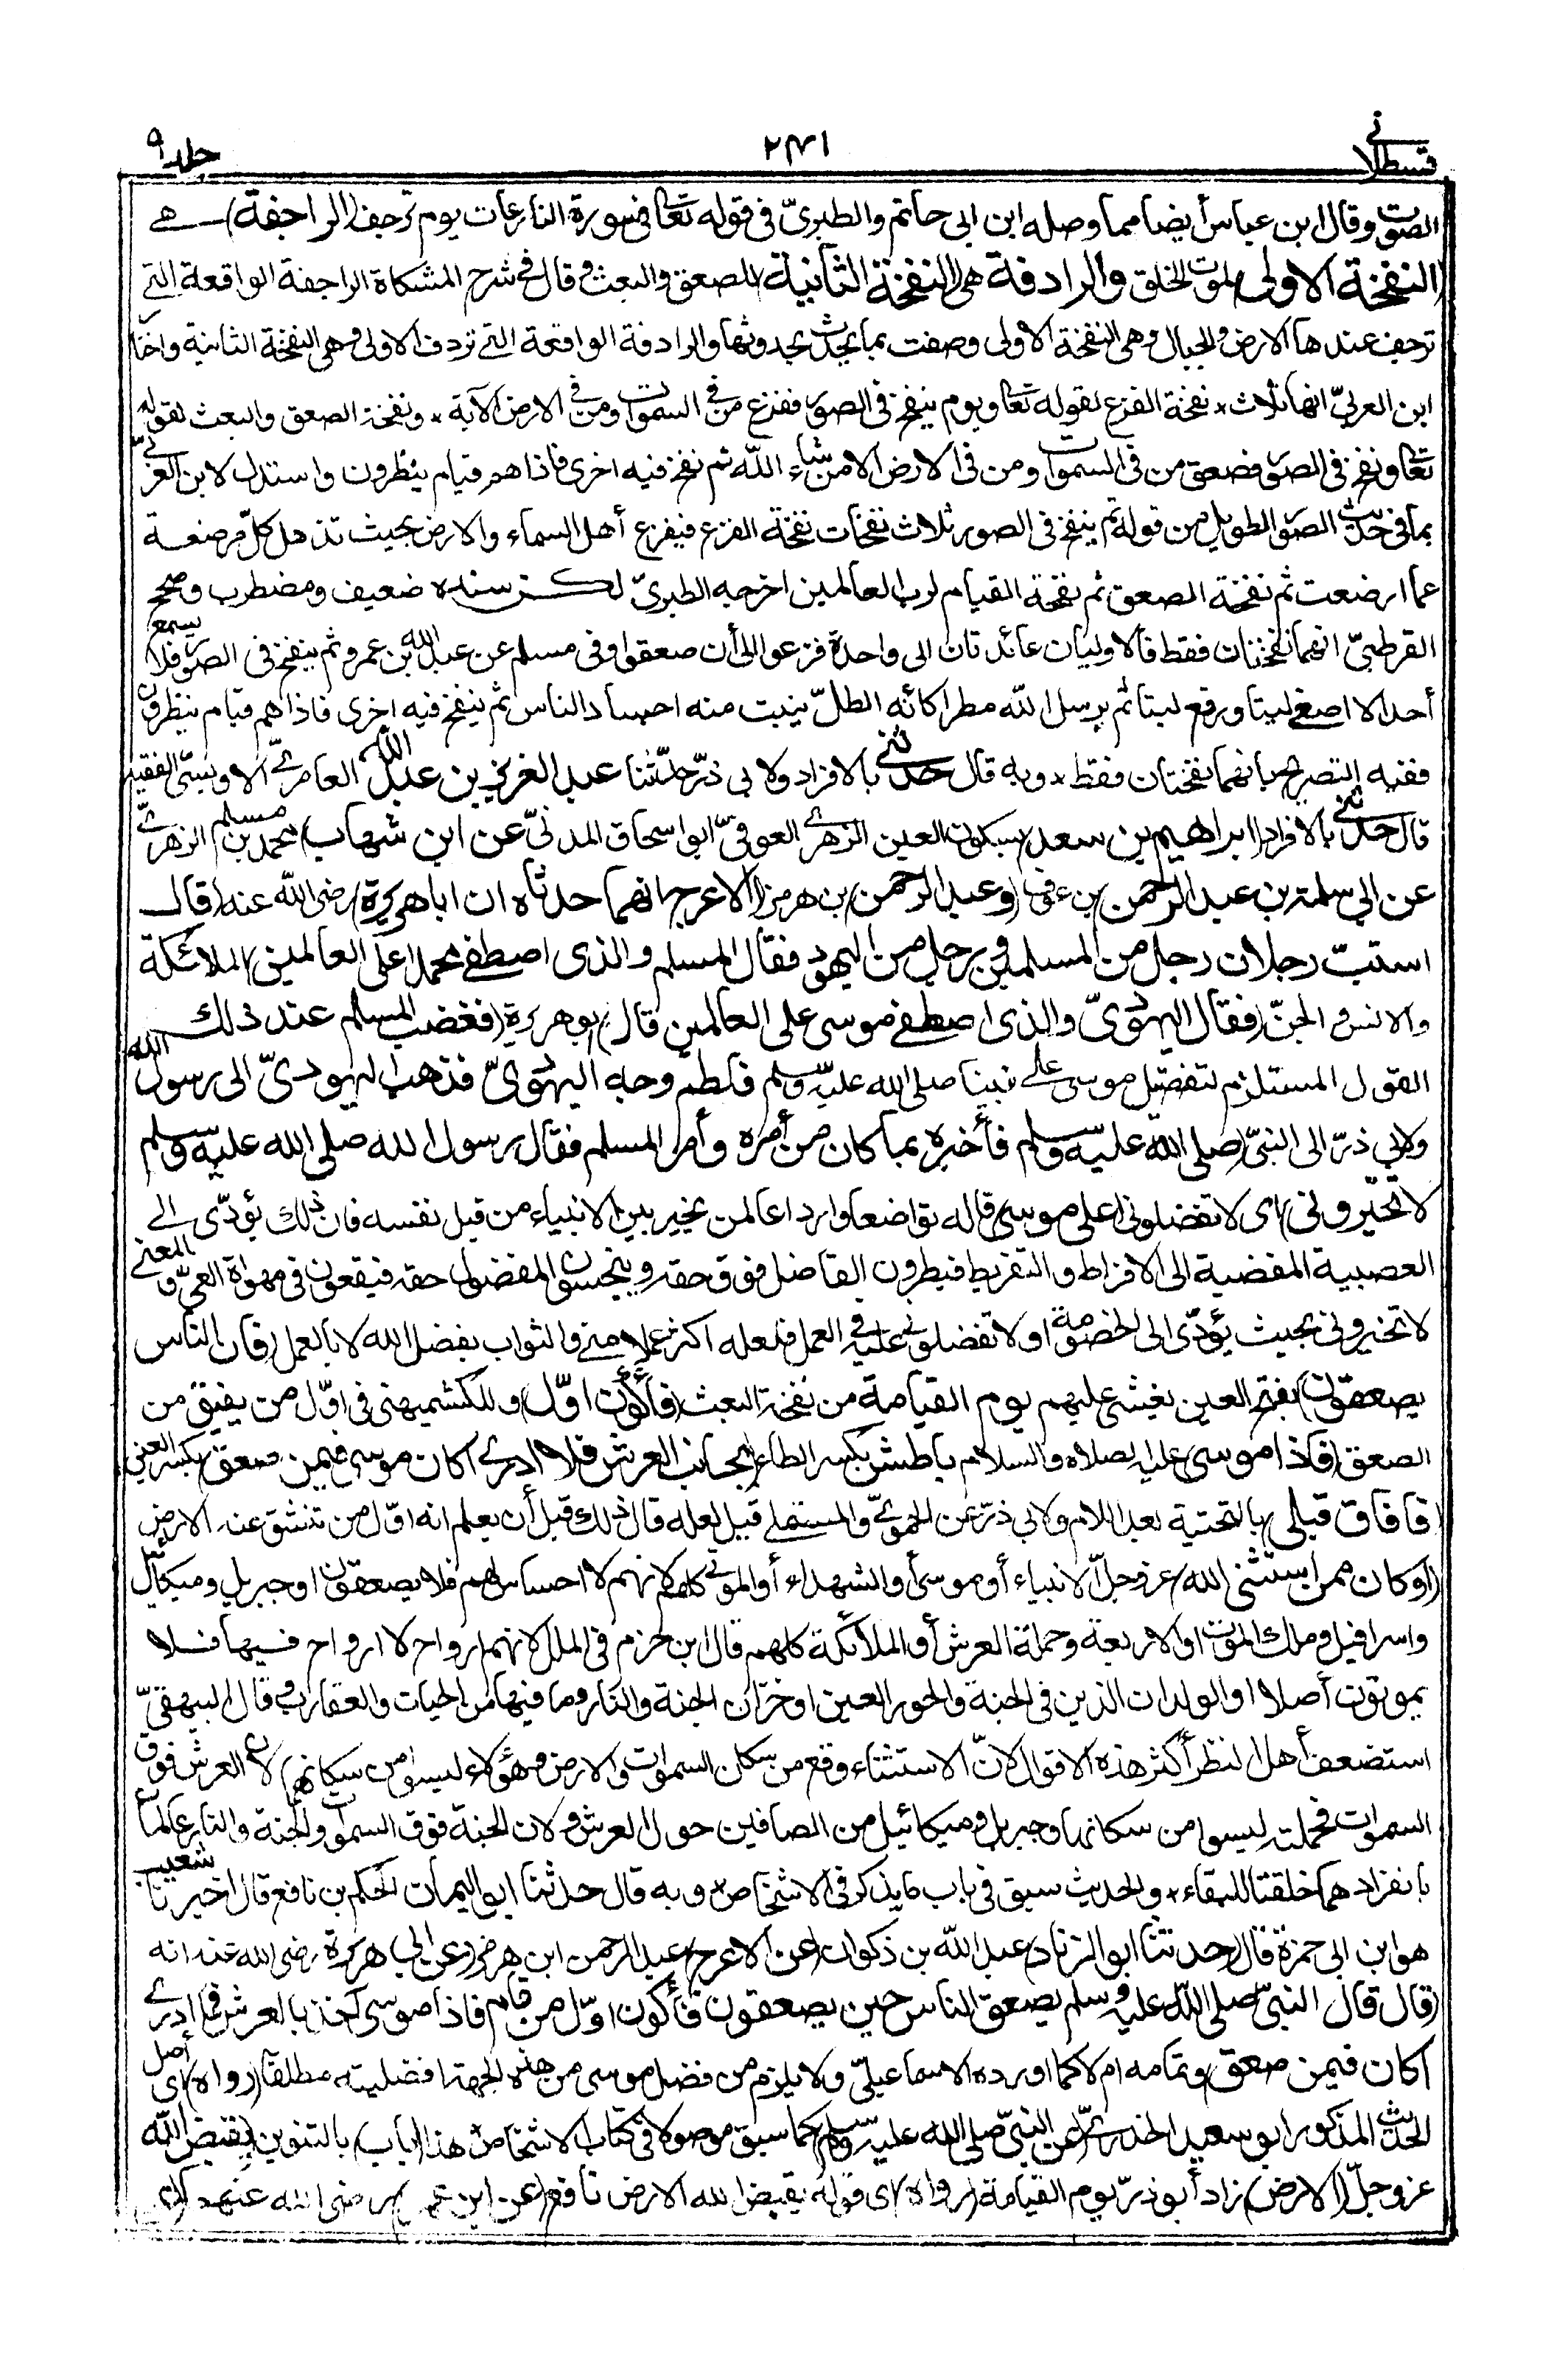 قسطلانى ٢٤١ جلد ٩
الصوت وقال ابن عباس أيضا مما وصله ابن ابى حاتم والطبرىّ فى قوله تعالى فى سورة النازعات يوم ترجف (الراجفة) هى
(النفخة الاولى) لموت الخلق (والرادفة) هى (النفخة الثانية) للصعق والبعث وقال فى شرح المشكاة الراجفة الواقعة التى
ترجف عندها الارض والجبال وهى النفخة الاولى وصفت بما يحدث بحدوثها والرادفة الواقعة التى تردف الاولى وهى النفخة الثانية واختار
ابن العربىّ انها ثلاث * نفخة الفزع لقوله تعالى ويوم ينفخ فى الصور ففزع من فى السموات ومن فى الارض الآية * ونفخة الصعق والبعث لقوله
تعالى ونفخ فى الصور فصعق من فى السموات ومن فى الارض الا من شاء الله ثم نفخ فيه اخرى فاذا هم قيام ينظرون واستدل لابن العربىّ
بما فى حديث الصور الطويل من قوله ثم ينفخ فى الصور ثلاث نفخات نفخة الفزع فيفزع أهل السماء والارض بحيث تذهل كلّ مرضعة
عما ارضعت ثم نفخة الصعق ثم نفخة القيام لرب العالمين اخرجه الطبرىّ لكن سنده ضعيف ومضطرب وصحح
القرطبىّ انهما نفختان فقط فالاوليان عائدتان الى واحدة فزعوا الى أن صعقوا وفى مسلم عن عبد الله بن عمرو ثم ينفخ فى الصور فلا يسمع
أحد الا اصغى ليتا ورفع ليتا ثم يرسل الله مطرا كأنه الطلّ ينبت منه اجساد الناس ثم ينفخ فيه اخرى فاذا هم قيام ينظرون
ففيه التصريح بانهما نفختان فقط * وبه قال حدثنى بالافراد ولابى ذرّ حدّثنا عبد العزيز بن عبد الله العامرىّ الاويسىّ الفقيه
قال حدثنى بالافراد (ابراهيم بن سعد) بسكون العين الزهرى العوفىّ ابو اسحاق المدنىّ عن ابن شهاب محمد بن مسلم الزهرىّ
عن ابى سلمة بن عبد الرحمن بن عوف (وعبد الرحمن) بن هرمز (الاعرج انهما حدثاه ان ابا هريرة) رضى الله عنه (قال
استبّ رجلان رجل من المسلمين ورجل من اليهود فقال المسلم والذى اصطفى محمدا على العالمين) الملائكة
والانس والجنّ (فقال اليهودىّ والذى اصطفى موسى على العالمين قال) ابو هريرة (فغضب المسلم عند ذلك
القول المستلزم لتفضيل موسى على نبينا صلى الله عليه وسلم فلطم وجه اليهودىّ فذهب اليهودىّ الى رسول الله
ولابى ذرّ الى النبىّ (صلى الله عليه وسلم فأخبره بما كان من أمره وأمر المسلم فقال رسول الله صلى الله عليه وسلم
لا تخيّرونى) اى لا تفضلونى (على موسى) قاله تواضعا واردا عالمن يخير بين الانبياء من قبل نفسه فان ذلك يؤدّى الى
العصبية المفضية الى الافراط والتفريط فيطرون الفاضل فوق حقه ويبخسون المفضول حقه فيقعون فى مهواة الغىّ والمعنى
لا تخيرونى بحيث يؤدّى الى الخصومة او لا تفضلونى عليه فى العمل فلعله اكثر عملا منى والثواب بفضل الله لا بالعمل (فان الناس
يصعقون) بفتح العين يغشى عليهم يوم القيامة من نفخة البعث (فأكون اوّل) وللكشميهنى فى اوّل من يفيق من
الصعق (فاذا موسى) عليه الصلاة والسلام باطش بكسر الطاء (بجانب العرش فلا ادرى اكان موسى فيمن صعق) بكسر العين
(فافاق قبلى) بالتحتية بعد اللام ولابى ذرّ عن الحموىّ والمستملى قبل لعله قال ذلك قبل أن يعلم انه اوّل من تنشق عنه الارض
(او كان ممن استثنى الله) عز وجلّ الانبياء أو موسى أو الشهداء أو الموتى كلهم لانهم لا احساس لهم فلا يصعقون او جبريل وميكائيل
واسرافيل وملك الموت او الاربعة وحملة العرش أو الملائكة كلهم قال ابن حزم فى الملل لانهم ارواح لا ارواح فيها فلا
يموتون أصلا او الولدان الذين فى الجنة والحور العين او خزان الجنة والنار وما فيها من الحيات والعقارب وقال البيهقىّ
استضعف أهل النظر أكثر هذه الاقوال لانّ الاستثناء وقع من سكان السموات والارض وهؤلاء ليسوا من سكانها لان العرش فوق
السموات فحملته ليسوا من سكانها وجبريل وميكائيل من الصافين حول العرش ولان الجنة فوق السموات والجنة والنار عالمان
بانفرادهما خلقتا للبقاء * والحديث سبق فى باب ما يذكر فى الاشخاص * وبه قال حدثنا ابو اليمان الحكم بن نافع قال اخبرنا شعيب
هو ابن ابى حمزة قال (حدثنا ابو الزناد) عبد الله بن ذكوان (عن الاعرج) عبد الرحمن ابن هرمز (عن ابى هريرة) رضى الله عنه انه
(قال قال النبىّ صلى الله عليه وسلم يصعق الناس حين يصعقون فأكون اوّل من قام فاذا موسى آخذ بالعرش فلا ادرى
اكان فيمن صعق) وتمامه ام لا كما اورده الاسماعيلىّ ولا يلزم من فضل موسى من هذه الجهة افضليته مطلقا (رواه) اى أصل
الحديث المذكور ابو سعيد الخدرىّ (عن النبىّ صلى الله عليه وسلم) كما سبق موصولا فى كتاب الاشخاص هذا (باب) بالتنوين (يقبض الله
عز وجلّ (الارض) زاد أبو ذرّ يوم القيامة (رواه) اى قوله يقبض الله الارض نافع (عن ابن عمر) رضى الله عنهما